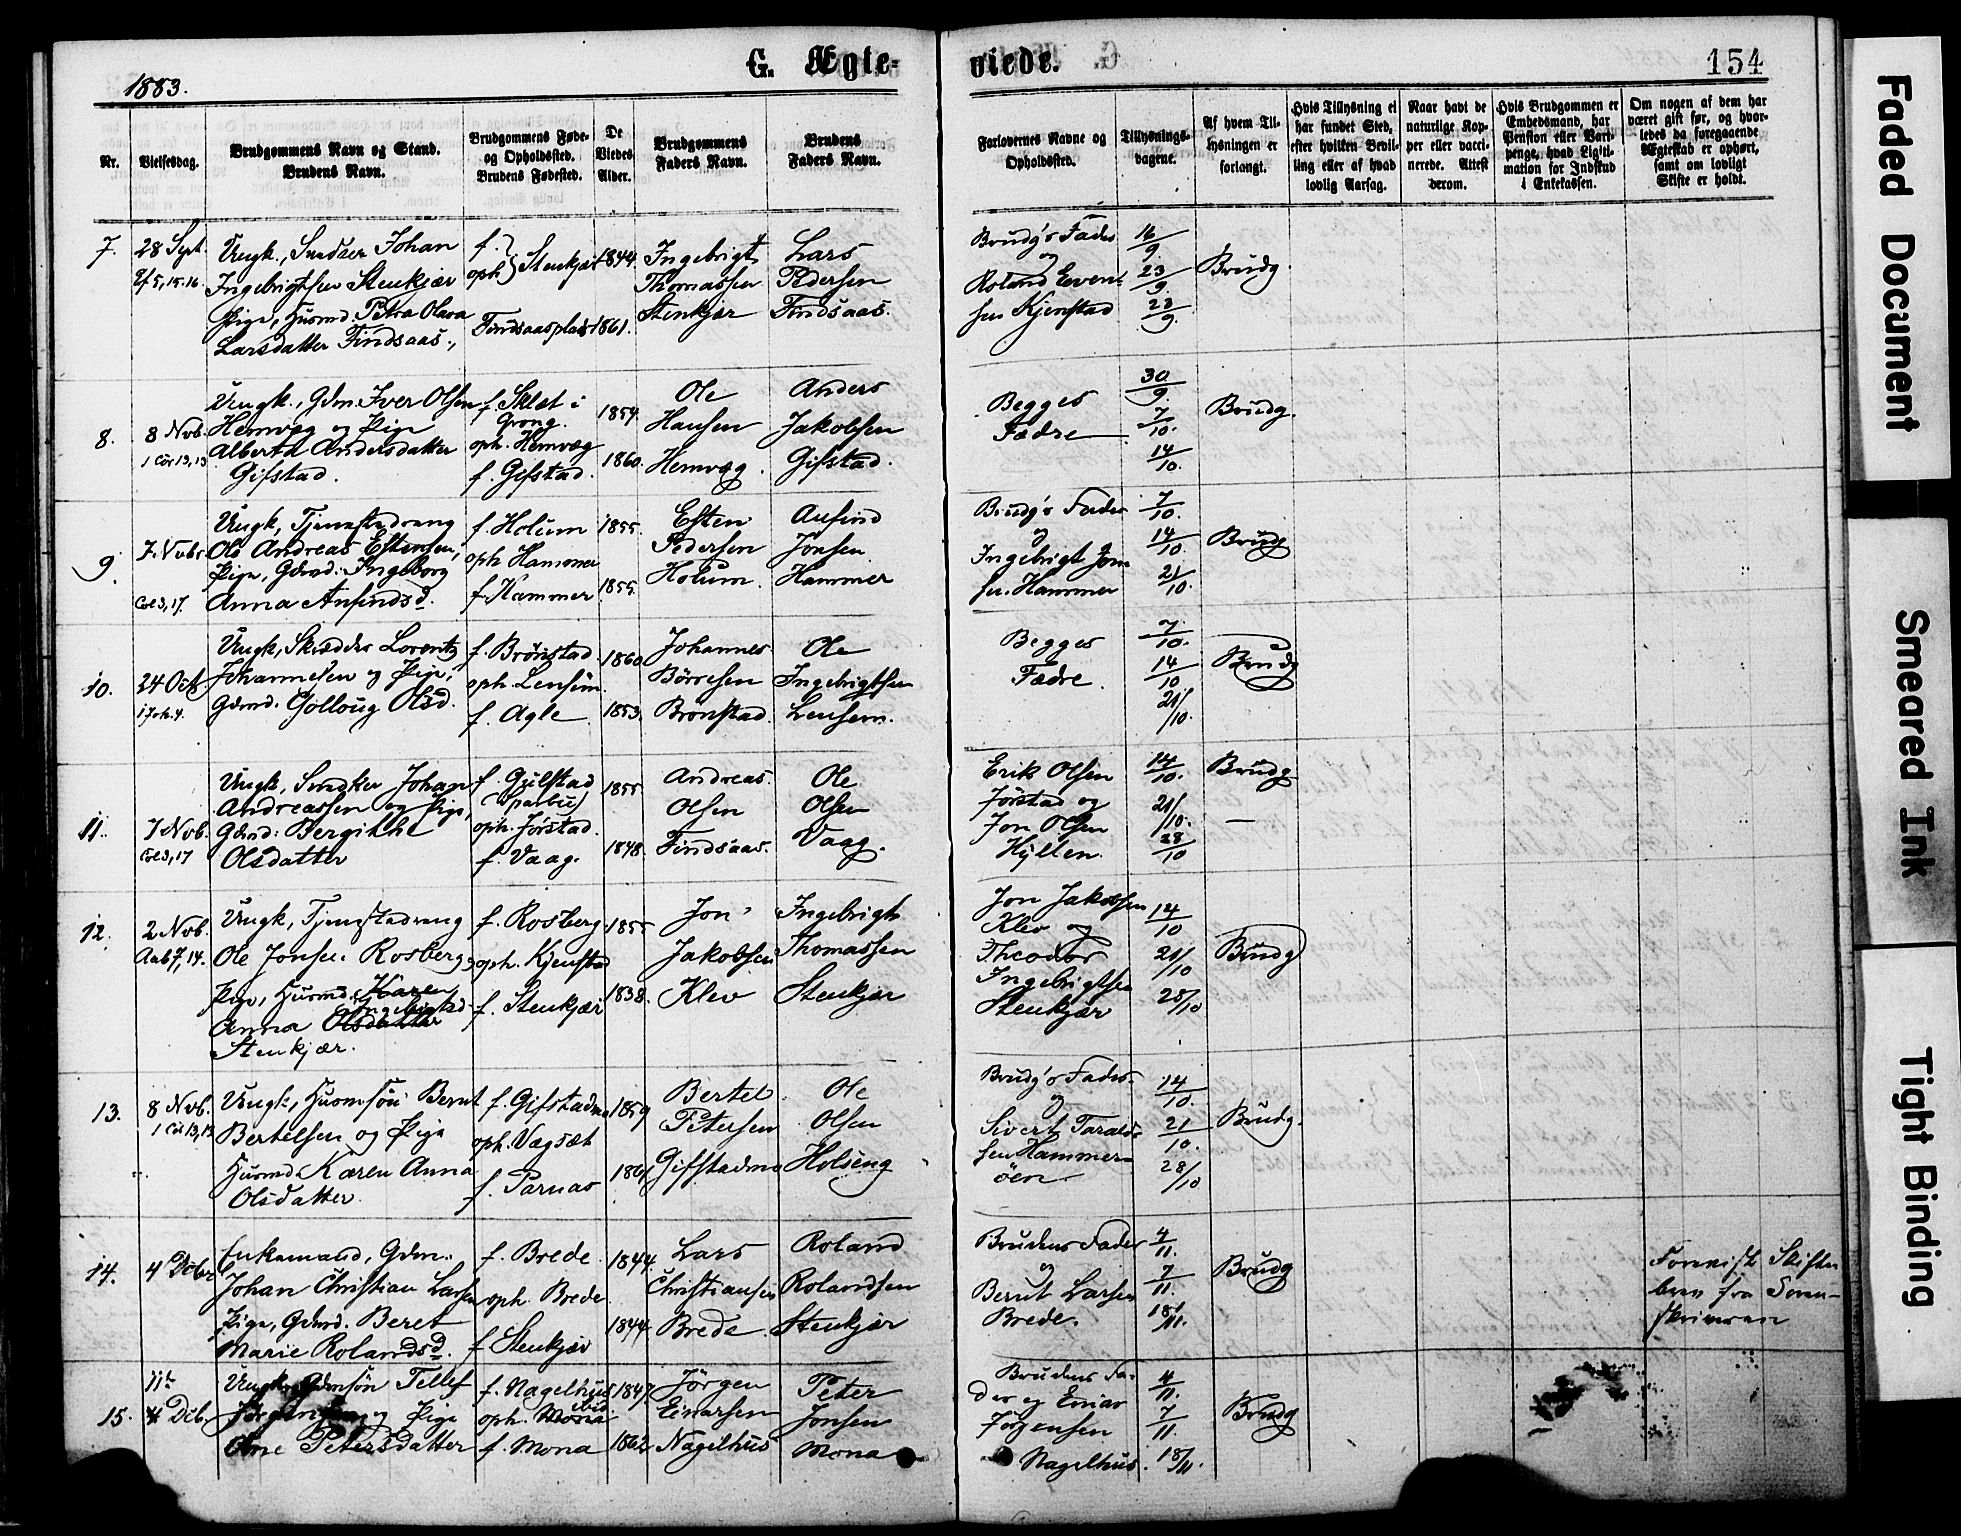 1883.
G. Ægte-
viede.
154
Nr.
Vielsesdag.
Brudgommens Navn og Stand.
Brudens Navn.
Brudgommens Føde-
og Opholdssted.
Brudens Fødested.
De
Viedes
Alder.
Brudgommens
Faders Navn.
Brudens
Faders Navn.
Forlovernes Navne og
Opholdssted.
Tillysnings-
dagene.
Af hvem Til-
lysningen er
forlangt.
Hvis Tillysning ei
har fundet Sted,
efter hvilken Bevil-
ling eller af hvad
lovlig Aarsag.
Naar havt de
naturlige Kop-
per eller vacci-
nerede. Attest
derom.
Hvis Brudgommen er
Embedsmand, har
Pension eller Vart-
penge, hvad Ligiti-
mation for Indskud
i Enkekassen.
Om nogen af dem har
været gift før, og hvor-
ledes da foregaaende
Ægteskab er ophørt,
samt om lovligt
Skifte er holdt.
7.
28 Sept
15.16.
Ungk., Johan
Ingebrigtsen Stenkjær
Pige, Husmd. Petra Olava
Larsdatter Findsaas.,
f.
oph } Stenkjær
Findsaasplads
1844.
1861.
Ingebrigt
Thomassen
Stenkjær
Lars
Pedersen
Findsaas.
Brudg's Fader
og
Roland Even-
sen Kjenstad
16/9.
23/9.
23/9.
Brudg.
8.
8 Nvb.
1 Cor 13,13
Ungk., Gdm. Iver Olsen
Hemvæg og Pige
Alberta Andersdatter
Gifstad.
f. Sklet i
Grong.
oph. Hemvæg
f. Gifstad.
1854.
1860.
Ole
Hansen
Hemvæg.
Anders
Jakobsen
Gifstad.
Begges
Fædre
30/9.
7/10.
14/10.
Brudg.
9.
7 Nvbr
Col 3,17.
Ungk, Tjenestedreng
Ole Andreas Estensen,
Pige, Gdmd: Ingeborg
Anna Anfindsd.
f. Holum
oph Hammer
f. Hammer
1855.
1855.
Esten
Pedersen
Holum.
Anfind
Jonsen
Hammer
Brudg's Fader
og
Ingebrigt Jon
sen Hammer
7/10.
14/10.
21/10.
Brudg
10.
24 Oct
Ungk, Skrædder Lorentz
Johannesen og Pige,
Gdmd. Golloug Olsd.
f. Brønstad.
oph. Lensem.
f. Agle
1860
1853.
Johannes
Børresen
Brønstad.
Ole
Ingebrigtsen
Lensem.
Begges
Fædre.
7/10.
14/10
21/10.
Brudg
11.
7 Nvb.
Col 3,17
Ungk, Snedker Johan
Andreassen og Pige,
Gdmd: Bergitthe
Olsdatter
f. Gjulstad
(Sparbu)
oph. Jørstad.
f. Vaag.
1855
1848.
Andreas.
Olsen
Findsaas.
Ole
Olsen
Vaag.
Erik Olsen
Jørstad og
Jon Olsen
Hyllen.
14/10.
21/10.
28/10
Brudg
—
12.
2 Nvb.
Aab 7,14.
Ungk, Tjenestedreng
Ole Jonsen Rosberg,
Pige, Husmd. Karen
Ingebrigtsd
Anna Olsdatter
Stenkjær.
f. Rosberg.
oph. Kjenstad
f. Stenkjær
1855
1838.
Jon
Jakobsen
Klev
Ingebrigt
Thomassen
Stenkjær
Jon Jakobsen
Klev og
Theodor
Ingebrigtsen
Stenkjær
14/10
21/10
28/10
Brudg
13.
8 Nvb.
1 Cor 13,13
Ungk, Husmsøn Bernt
Bertelsen og Pige
Husmd Karen Anna
Olsdatter.
f. Gifstadmo
oph. Vægsæt
f. Parnas
1859
1861
Bertel
Petersen
Gifstadmo
Ole
Olsen
Holseng
Brudg's Fader
og
Sivert Tarald-
sen Hammer-
øen
14/10.
21/10.
28/10
Brudg.
14.
4 Dcbr
Enkemand, Gdm.
Johan Christian Larsen
Pige, Gdmd. Beret
Marie Rolandsd.
f. Brede
oph. Brede
f. Stenkjær
1844.
1844.
Lars
Christiansen
Brede
Roland
Rolandsen
Stenkjær
Brudens Fader
og
Bernt Larsen
Brede.
4/11.
7/11.
18/11.
Brudg
Forevist Skifte-
brev fra Soren-
skriveren
15.
11te
Dcb,
Ungk, Gdmsøn Tellef
Jørgensen og Pige
Ane Petersdatter
f. Nagelhus
ibid.
oph. Mona
f. Mona
1847.
1862
Jørgen
Einarsen
Nagelhus
Peter
Jonsen
Mona
Brudens Fa-
der og Einar
Jørgensen
Nagelhus.
4/11.
7/11.
18/11.
Brudg
Faded Document
Smeared Ink
Tight Binding